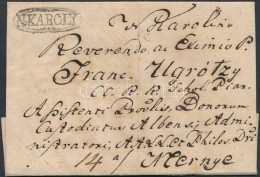 N.KAROLY
N. Karolino
Reverendo, ac Eximio P.
Franc. Ugrótzy
CC. RR. Schol. Piar.
Assistenti Provlis, Donorum
Custodiatus Albensis, Admi-
nistratori, AA. LL. et Philos. Dri
14 a/ Mernye